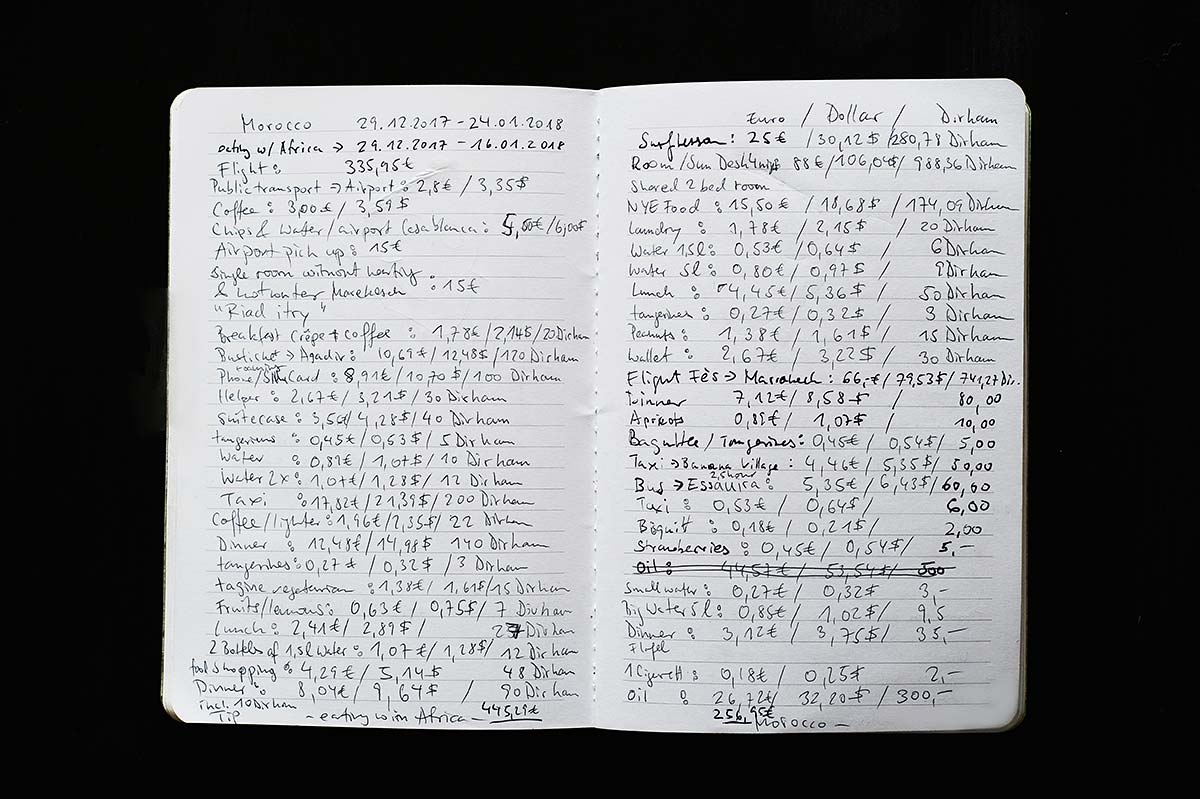 Morocco 29.12.2017 - 24.01.2018
eating w/ Africa → 29.12.2017 - 16.01.2018
Flight : 335,95€
Public transport → Airport : 2,8€ / 3,35$
Coffee : 3,00€ / 3,59$
Chips & Water / airport Casablanca : 5,00€ / 6,00$
Airport pick up : 15€
single room without heating
& hot water Marekesch : 15€
"Riad itry"
Breakfast Crêpe + coffee : 1,78€ / 2,14$ / 20 Dirham
Busticket → Agadir : 10,69€ / 12,48$ / 120 Dirham
Phone / Card : 8,91€ / 10,70$ / 100 Dirham
Helper : 2,67€ / 3,21$ / 30 Dirham
Suitecase : 3,56€ / 4,28$ / 40 Dirham
tangerines : 0,45€ / 0,53$ / 5 Dirham
Water : 0,89€ / 1,07$ / 10 Dirham
Water 2x : 1,07€ / 1,28$ / 12 Dirham
Taxi : 17,82€ / 21,39$ / 200 Dirham
Coffee / lighter : 1,96€ / 2,35$ / 22 Dirham
Dinner : 12,48€ / 14,98$ 140 Dirham
tangerines : 0,27€ / 0,32$ / 3 Dirham
tagine vegetarian : 1,38€ / 1,61$ / 15 Dirham
Fruits/lemons : 0,63€ / 0,75$ / 7 Dirham
Lunch : 2,41€ / 2,89$ / 27 Dirham
2 Bottles of 1,5l Water : 1,07€ / 1,28$ / 12 Dirham
food shopping : 4,29€ / 5,14$ 48 Dirham
Dinner : 8,04€ / 9,64$ / 90 Dirham
incl. 10 Dirham
Tip - eating w in Africa - 445,29€
Euro / Dollar / Dirham
Surflesson : 25€ / 30,12$ / 280,78 Dirham
Room / Sun Desk 88€ / 106,04$ / 988,36 Dirham
Shared 2 bed room
NYE Food : 15,50€ / 18,68$ / 174,09 Dirham
Laundry : 1,78€ / 2,15$ / 20 Dirham
Water 1,5l : 0,53€ / 0,64$ / 6 Dirham
Water 5l : 0,80€ / 0,97$ / 9 Dirham
Lunch : 4,45€ / 5,36$ / 50 Dirham
tangerines : 0,27€ / 0,32$ / 3 Dirham
Peanuts : 1,38€ / 1,61$ / 15 Dirham
Wallet : 2,67€ / 3,22$ / 30 Dirham
Flight Fès → Marrakech : 66,-€ / 79,53$ / 741,27 Dir.
Dinner 7,12€ / 8,58$ / 80,00
Apricots 0,89€ / 1,07$ / 10,00
Baguttee / Tangerines : 0,45€ / 0,54$ / 5,00
Taxi → Banana Village : 4,46€ / 5,35$ / 50,00
2,5 hour
Bus → Essauira : 5,35€ / 6,43$ / 60,00
Taxi : 0,53€ / 0,64$ / 6,00
Bisquitt : 0,18€ / 0,21$ / 2,00
Strawberries : 0,45€ / 0,54$ / 5,-
Oil : 44,57€ / 53,54$ / 500
Small water : 0,27€ / 0,32$ 3,-
Big Water 5l : 0,85€ / 1,02$ / 9,5
Dinner : 3,12€ / 3,75$ / 35,-
1 Cigarett : 0,18€ / 0,25$ 2,-
Oil : 26,72€ / 32,20$ / 300,-
256,95€ Morocco -